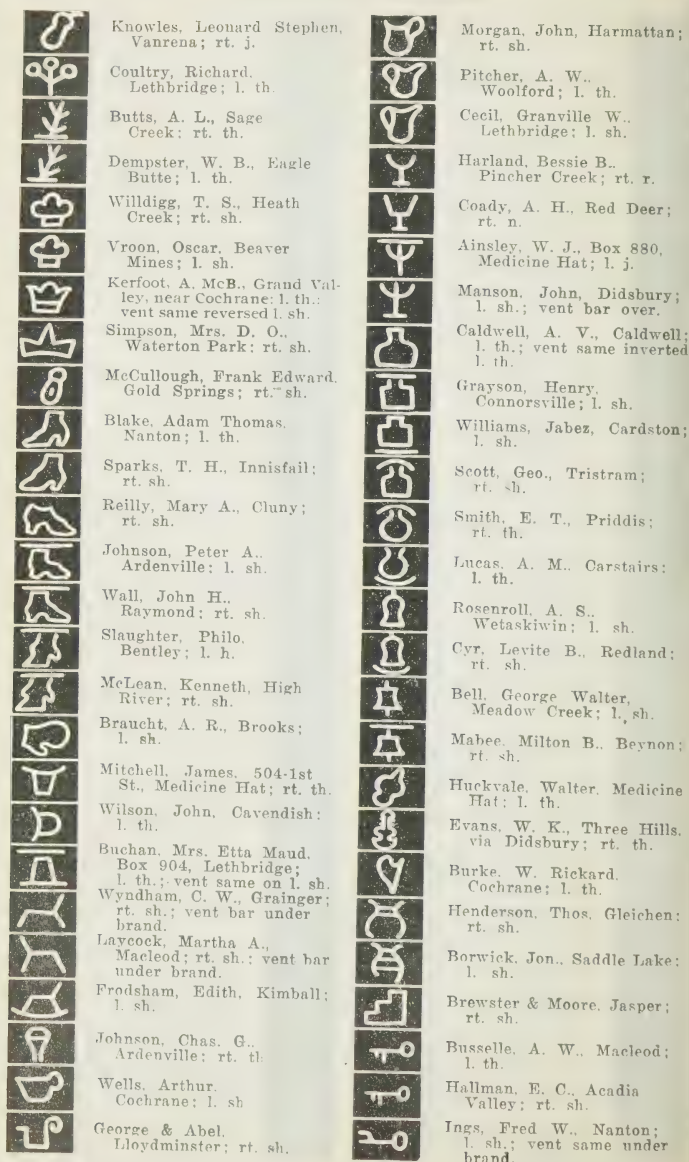 Knowles, Leonard Stephen,
Vanrena; rt. j.
Coultry, Richard.
Lethbridge; l. th.
Butts, A. L., Sage
Creek; rt. th.
Dempster, W. B., Eagle
Butte; l. th.
Willdigg, T. S., Heath
Creek; rt. sh.
Vroon, Oscar, Beaver
Mines; l. sh.
Kerfoot, A. McB., Grand Val-
ley, near Cochrane; l. th.:
vent same reversed l. sh.
Simpson, Mrs. D. O.,
Waterton Park; rt. sh.
McCullough, Frank Edward.
Gold Springs; rt. sh.
Blake, Adam Thomas.
Nanton; l. th.
Sparks, T. H., Innisfail;
rt. sh.
Reilly, Mary A., Cluny;
rt. sh.
Johnson, Peter A..
Ardenville; l. sh.
Wall, John H..
Raymond; rt. sh.
Slaughter, Philo.
Bentley; l. h.
McLean, Kenneth, High
River; rt. sh.
Braucht, A. R., Brooks;
l. sh.
Mitchell, James, 504-1st
St., Medicine Hat; rt. th.
Wilson, John, Cavendish;
l. th.
Buchan, Mrs. Etta Maud.
Box 904, Lethbridge;
l. th.; vent same on l. sh.
Wyndham, C. W., Grainger;
rt. sh.; vent bar under
brand.
Laycock, Martha A.,
Macleod; rt. sh.; vent bar
under brand.
Frodsham, Edith, Kimball;
l. sh.
Johnson, Chas. G..
Ardenville; rt. th
Wells, Arthur.
Cochrane; l. sh
George & Abel.
Lloydminster; rt. sh.
Morgan, John, Harmattan;
rt. sh.
Pitcher, A. W..
Woolford; l. th.
Cecil, Granville W..
Lethbridge; l. sh.
Harland, Bessie B..
Pincher Creek; rt. r.
Coady, A. H., Red Deer;
rt. n.
Ainsley, W. J., Box 880,
Medicine Hat; l. j.
Manson, John, Didsbury;
l. sh.; vent bar over.
Caldwell, A. V., Caldwell;
l. th.; vent same inverted
l. th.
Grayson, Henry,
Connorsville; l. sh.
Williams, Jabez, Cardston;
l. sh.
Scott, Geo., Tristram;
rt. sh.
Smith, E. T., Priddis;
rt. th.
Lucas, A. M., Carstairs;
l. th.
Rosenroll, A. S..
Wetaskiwin; l. sh.
Cyr, Levite B., Redland;
rt. sh.
Bell, George Walter,
Meadow Creek; l. sh.
Mabee, Milton B., Beynon;
rt. sh.
Huckvale, Walter, Medicine
Hat; l. th.
Evans, W. K., Three Hills,
via Didsbury; rt. th.
Burke, W. Rickard.
Cochrane; l. th.
Henderson, Thos, Gleichen;
rt. sh.
Borwick, Jon., Saddle Lake;
l. sh.
Brewster & Moore, Jasper;
rt. sh.
Busselle, A. W., Macleod;
l. th.
Hallman, E. C., Acadia
Valley; rt. sh.
Ings, Fred W., Nanton;
l. sh.; vent same under
brand.